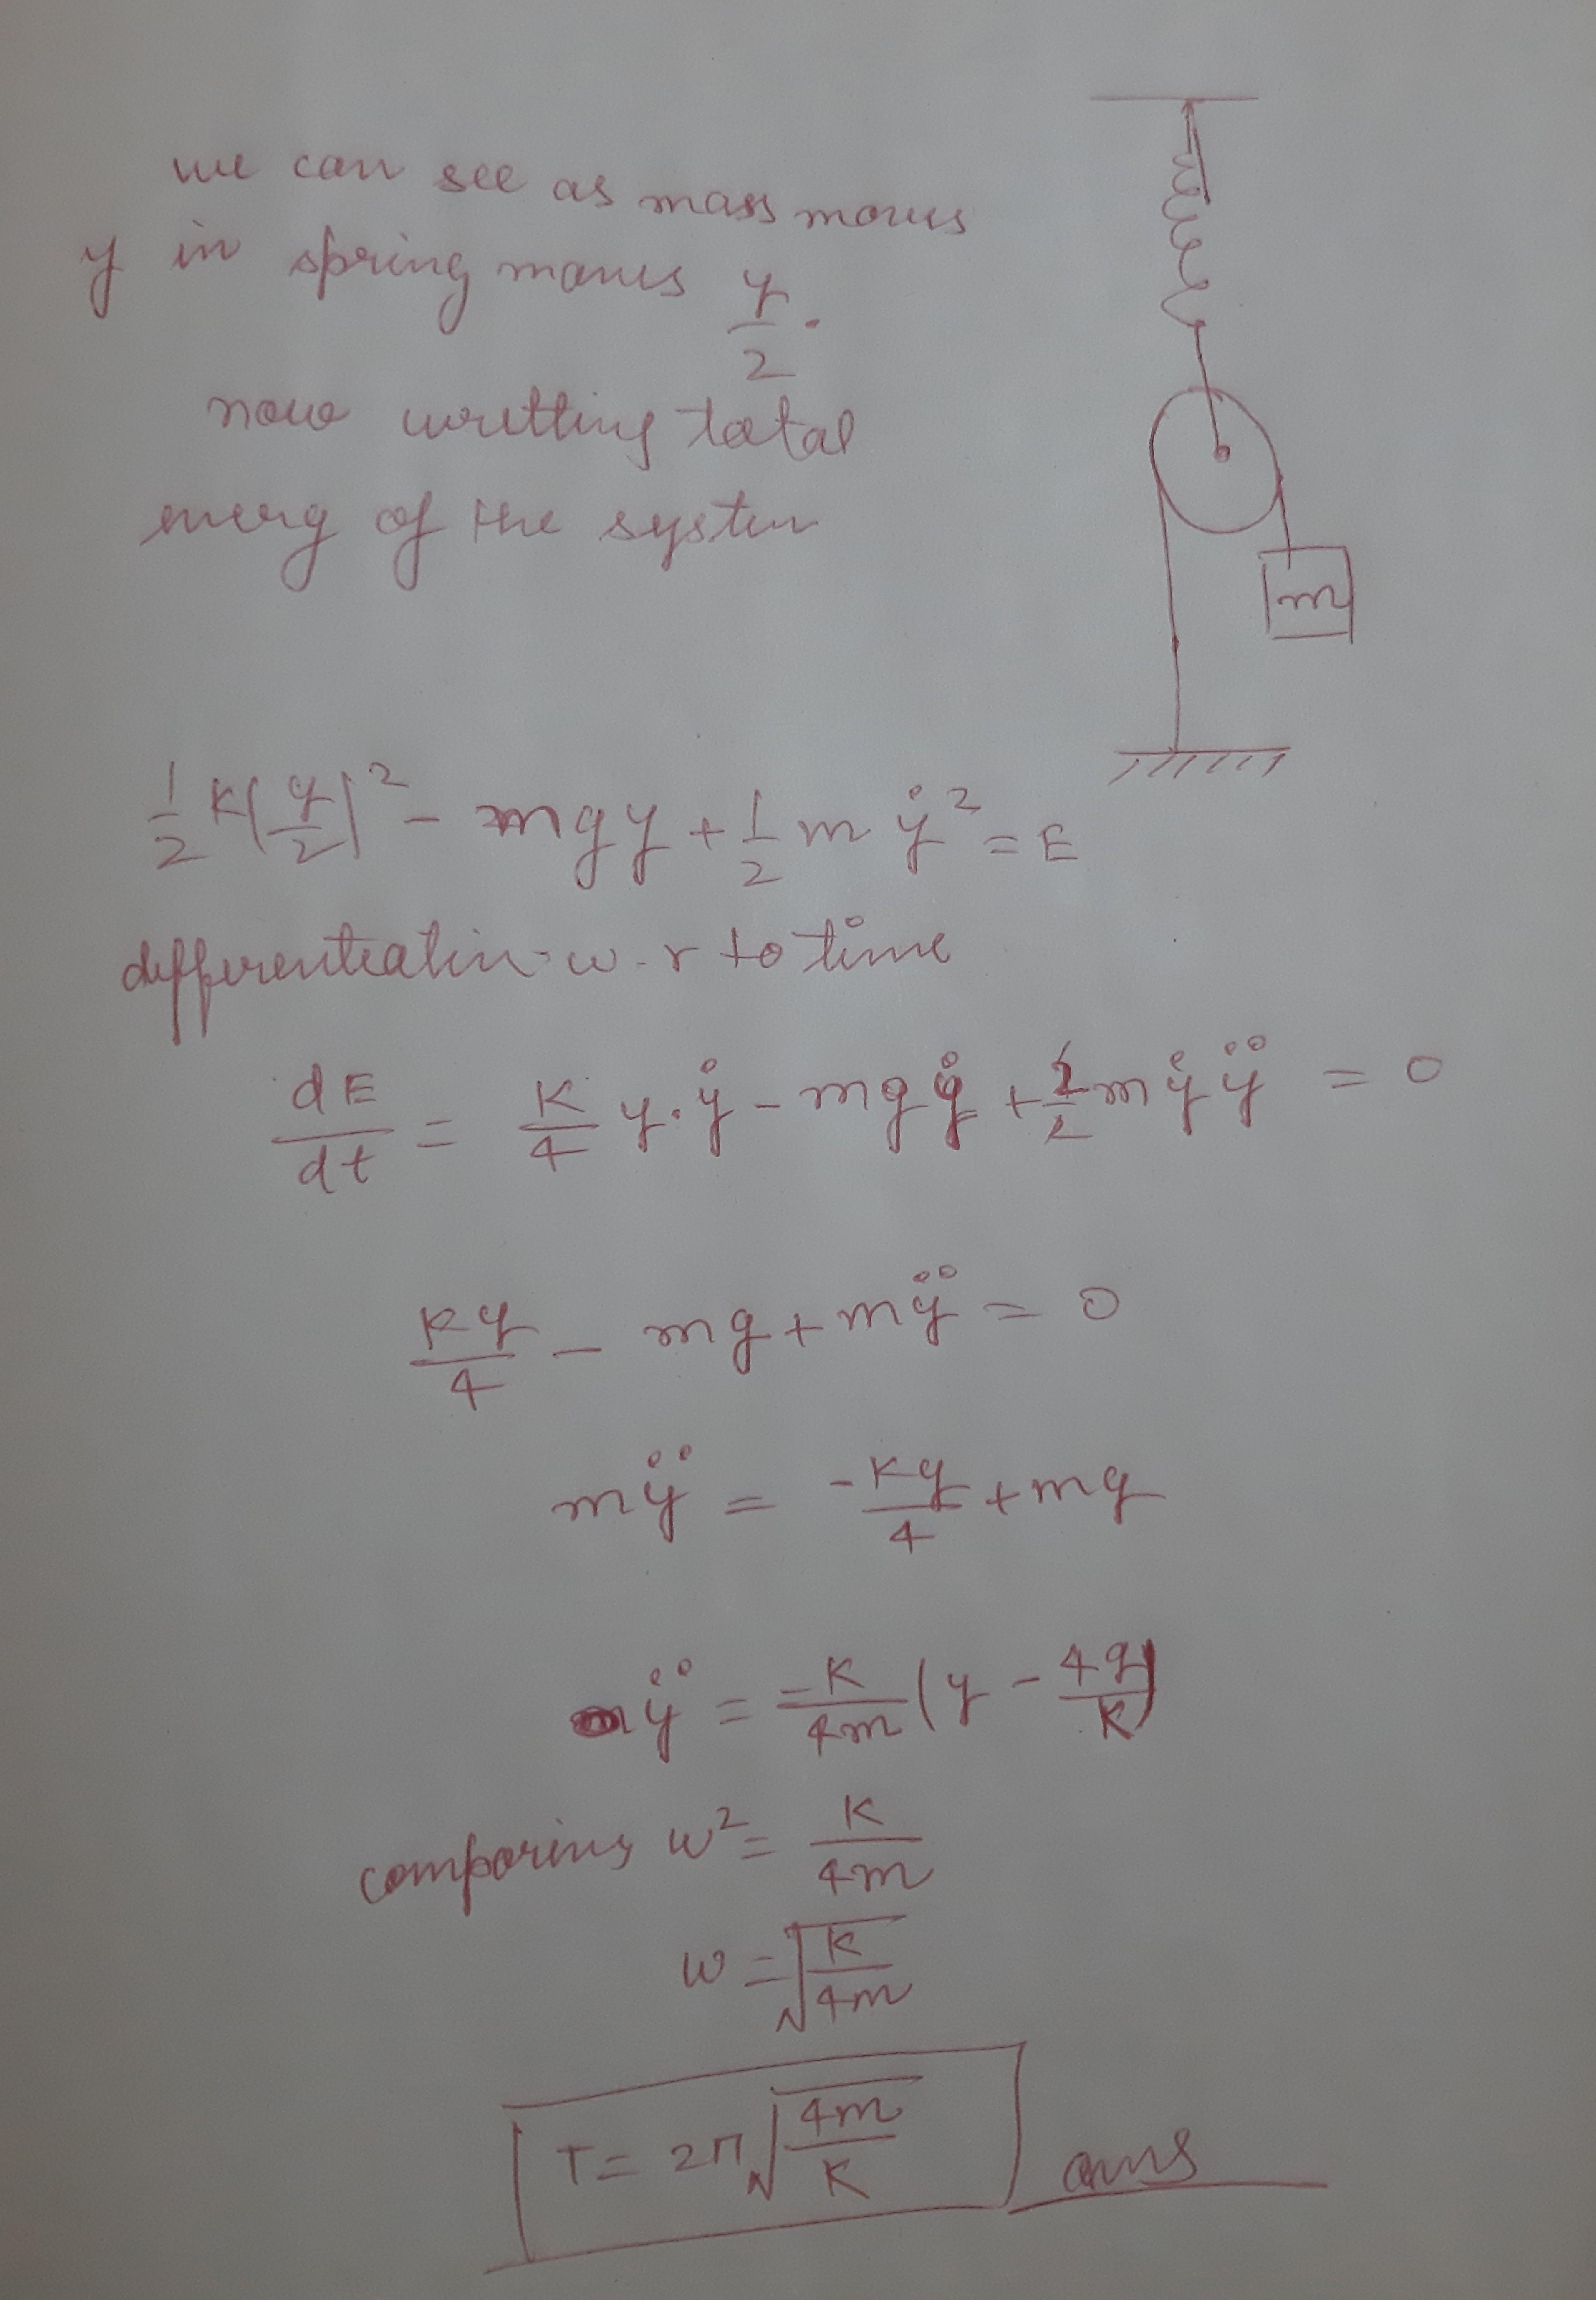 we can see as mass moves
y in spring moves y/2.
now writting total
energ of the system
m
1/2 K(y/2)² - mgy + 1/2 m ẏ² = E
differentiatin w.r to time
dE/dt = K/4 y.ẏ - mgẏ + 2/2 mẏÿ = 0
Ky/4 - mg + mÿ = 0
mÿ = -Ky/4 + mg
ÿ = -K/4m (y - 4g/K)
comparing w² = K/4m
w = √(K/4m)
T = 2π√(4m/K) ans